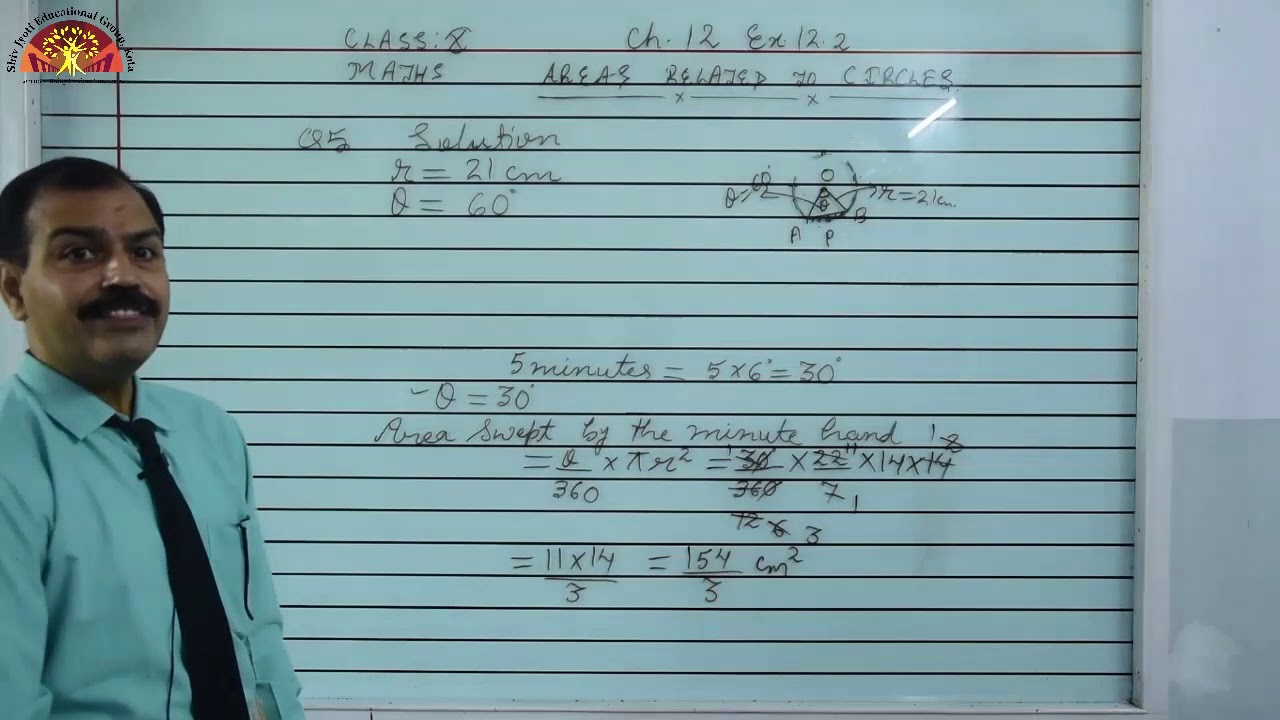 Shiv Jyoti Educational Group, Kota
CLASS: X Ch. 12 Ex 12.2
MATHS AREAS RELATED TO CIRCLES
Q5 Solution
r = 21 cm
θ = 60°
60° O
θ r = 21 cm.
θ
A P B
5 minutes = 5 × 6° = 30°
θ = 30°
Area swept by the minute hand
= θ/360 × π r² = 30/360 × 22/7 × 14 × 14
12 6 3
= 11 × 14/3 = 154/3 cm²